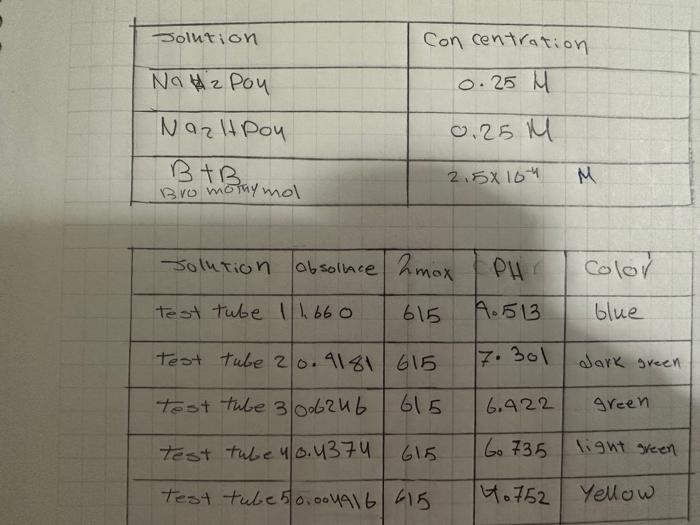 Solution Concentration
NaH2PO4 0.25 M
Na2HPO4 0.25 M
BTB 2.5X10-4 M
Bromothymol
Solution absolnce λmax PH Color
test tube 1 1.660 615 9.513 blue
test tube 2 0.9181 615 7.301 dark green
test tube 3 0.6246 615 6.922 green
test tube 4 0.4374 615 6.735 light green
test tube 5 0.004916 615 4.752 Yellow